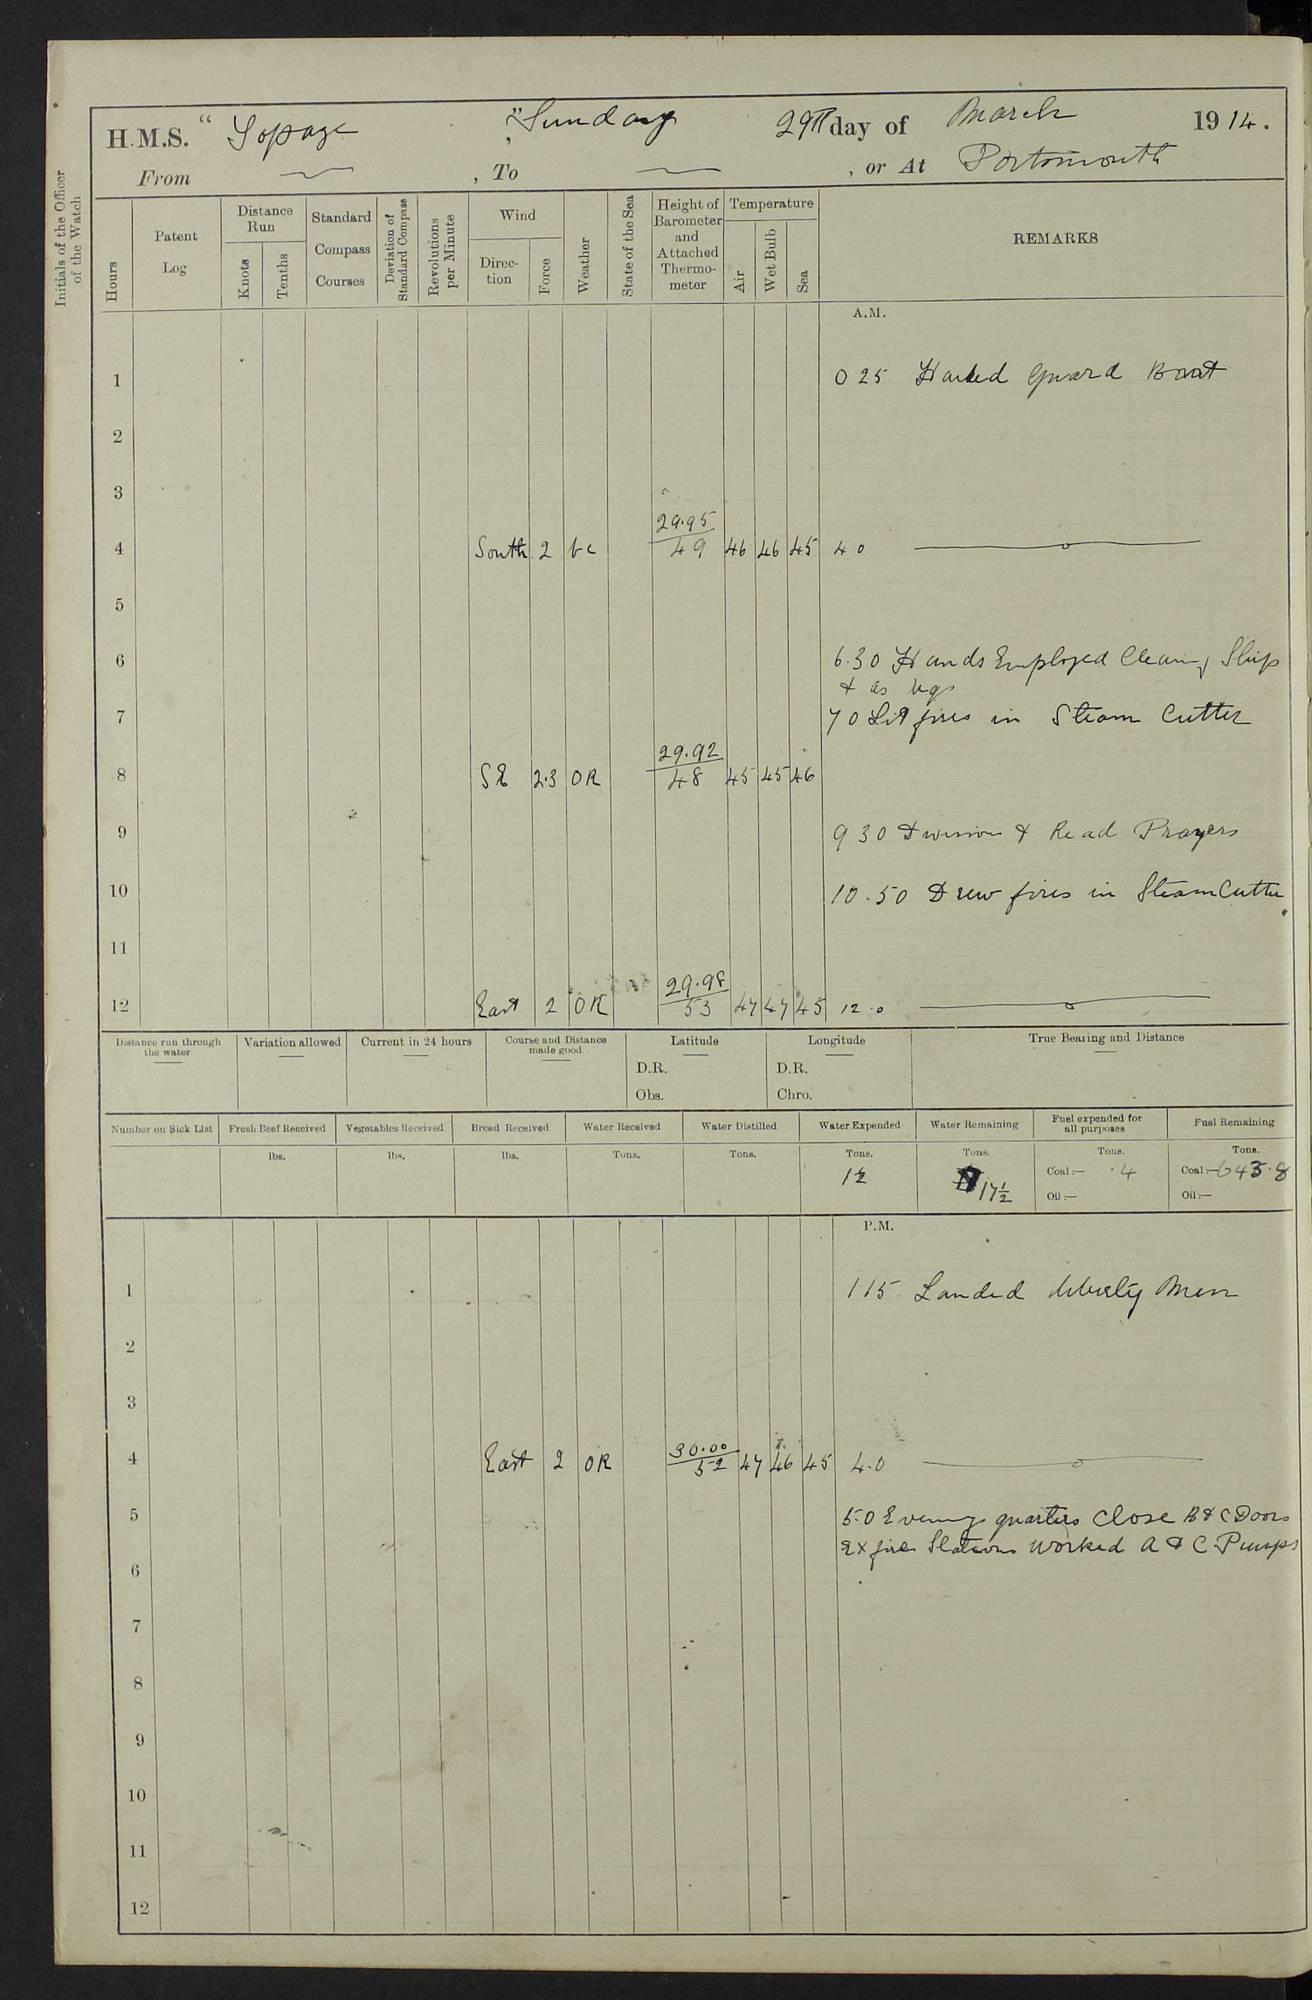 H.M.S. " Topaze " Sunday 29th day of March 1914.
From ~ , To ~ , or At Portsmouth
Initials of the Officer of the Watch
Hours
Patent Log
Distance Run
Knots
Tenths
Standard Compass Courses
Deviation of Standard Compass
Revolutions per Minute
Wind
Direction
Force
Weather
State of the Sea
Height of Barometer and Attached Thermometer
Temperature
Air
Wet Bulb
Sea
REMARKS
A.M.
1 0 25 Hailed Guard Boat
2
3
4 South 2 bc 29.95/49 46 46 45 4 0
5
6 6.30 Hands Employed Cleaning Ship
& as
7 7 0 Lit fires in Steam Cutter
8 SE 2.3 OR 29.92/48 45 45 46
9 9 30 Division & Read Prayers
10 10.50 Drew fires in Steam Cutter
11
12 East 2 OR 29.98/53 47 47 45 12.0
Distance run through the water
Variation allowed
Current in 24 hours
Course and Distance made good
Latitude
D.R.
Obs.
Longitude
D.R.
Chro.
True Bearing and Distance
Number on Sick List
Fresh Beef Received
lbs.
Vegetables Received
lbs.
Bread Received
lbs.
Water Received
Tons.
Water Distilled
Tons.
Water Expended
Tons.
1½
Water Remaining
Tons.
17½
Fuel expended for all purposes
Tons.
Coal :— .4
Oil :—
Fuel Remaining
Tons.
Coal :— 643.8
Oil :—
P.M.
1 1 15 Landed liberty Men
2
3
4 East 2 OR 30.00/52 47 46 45 4.0
5 5.0 Evening quarters Close B & C Doors
Ex fire Stations Worked A & C Pumps
6
7
8
9
10
11
12